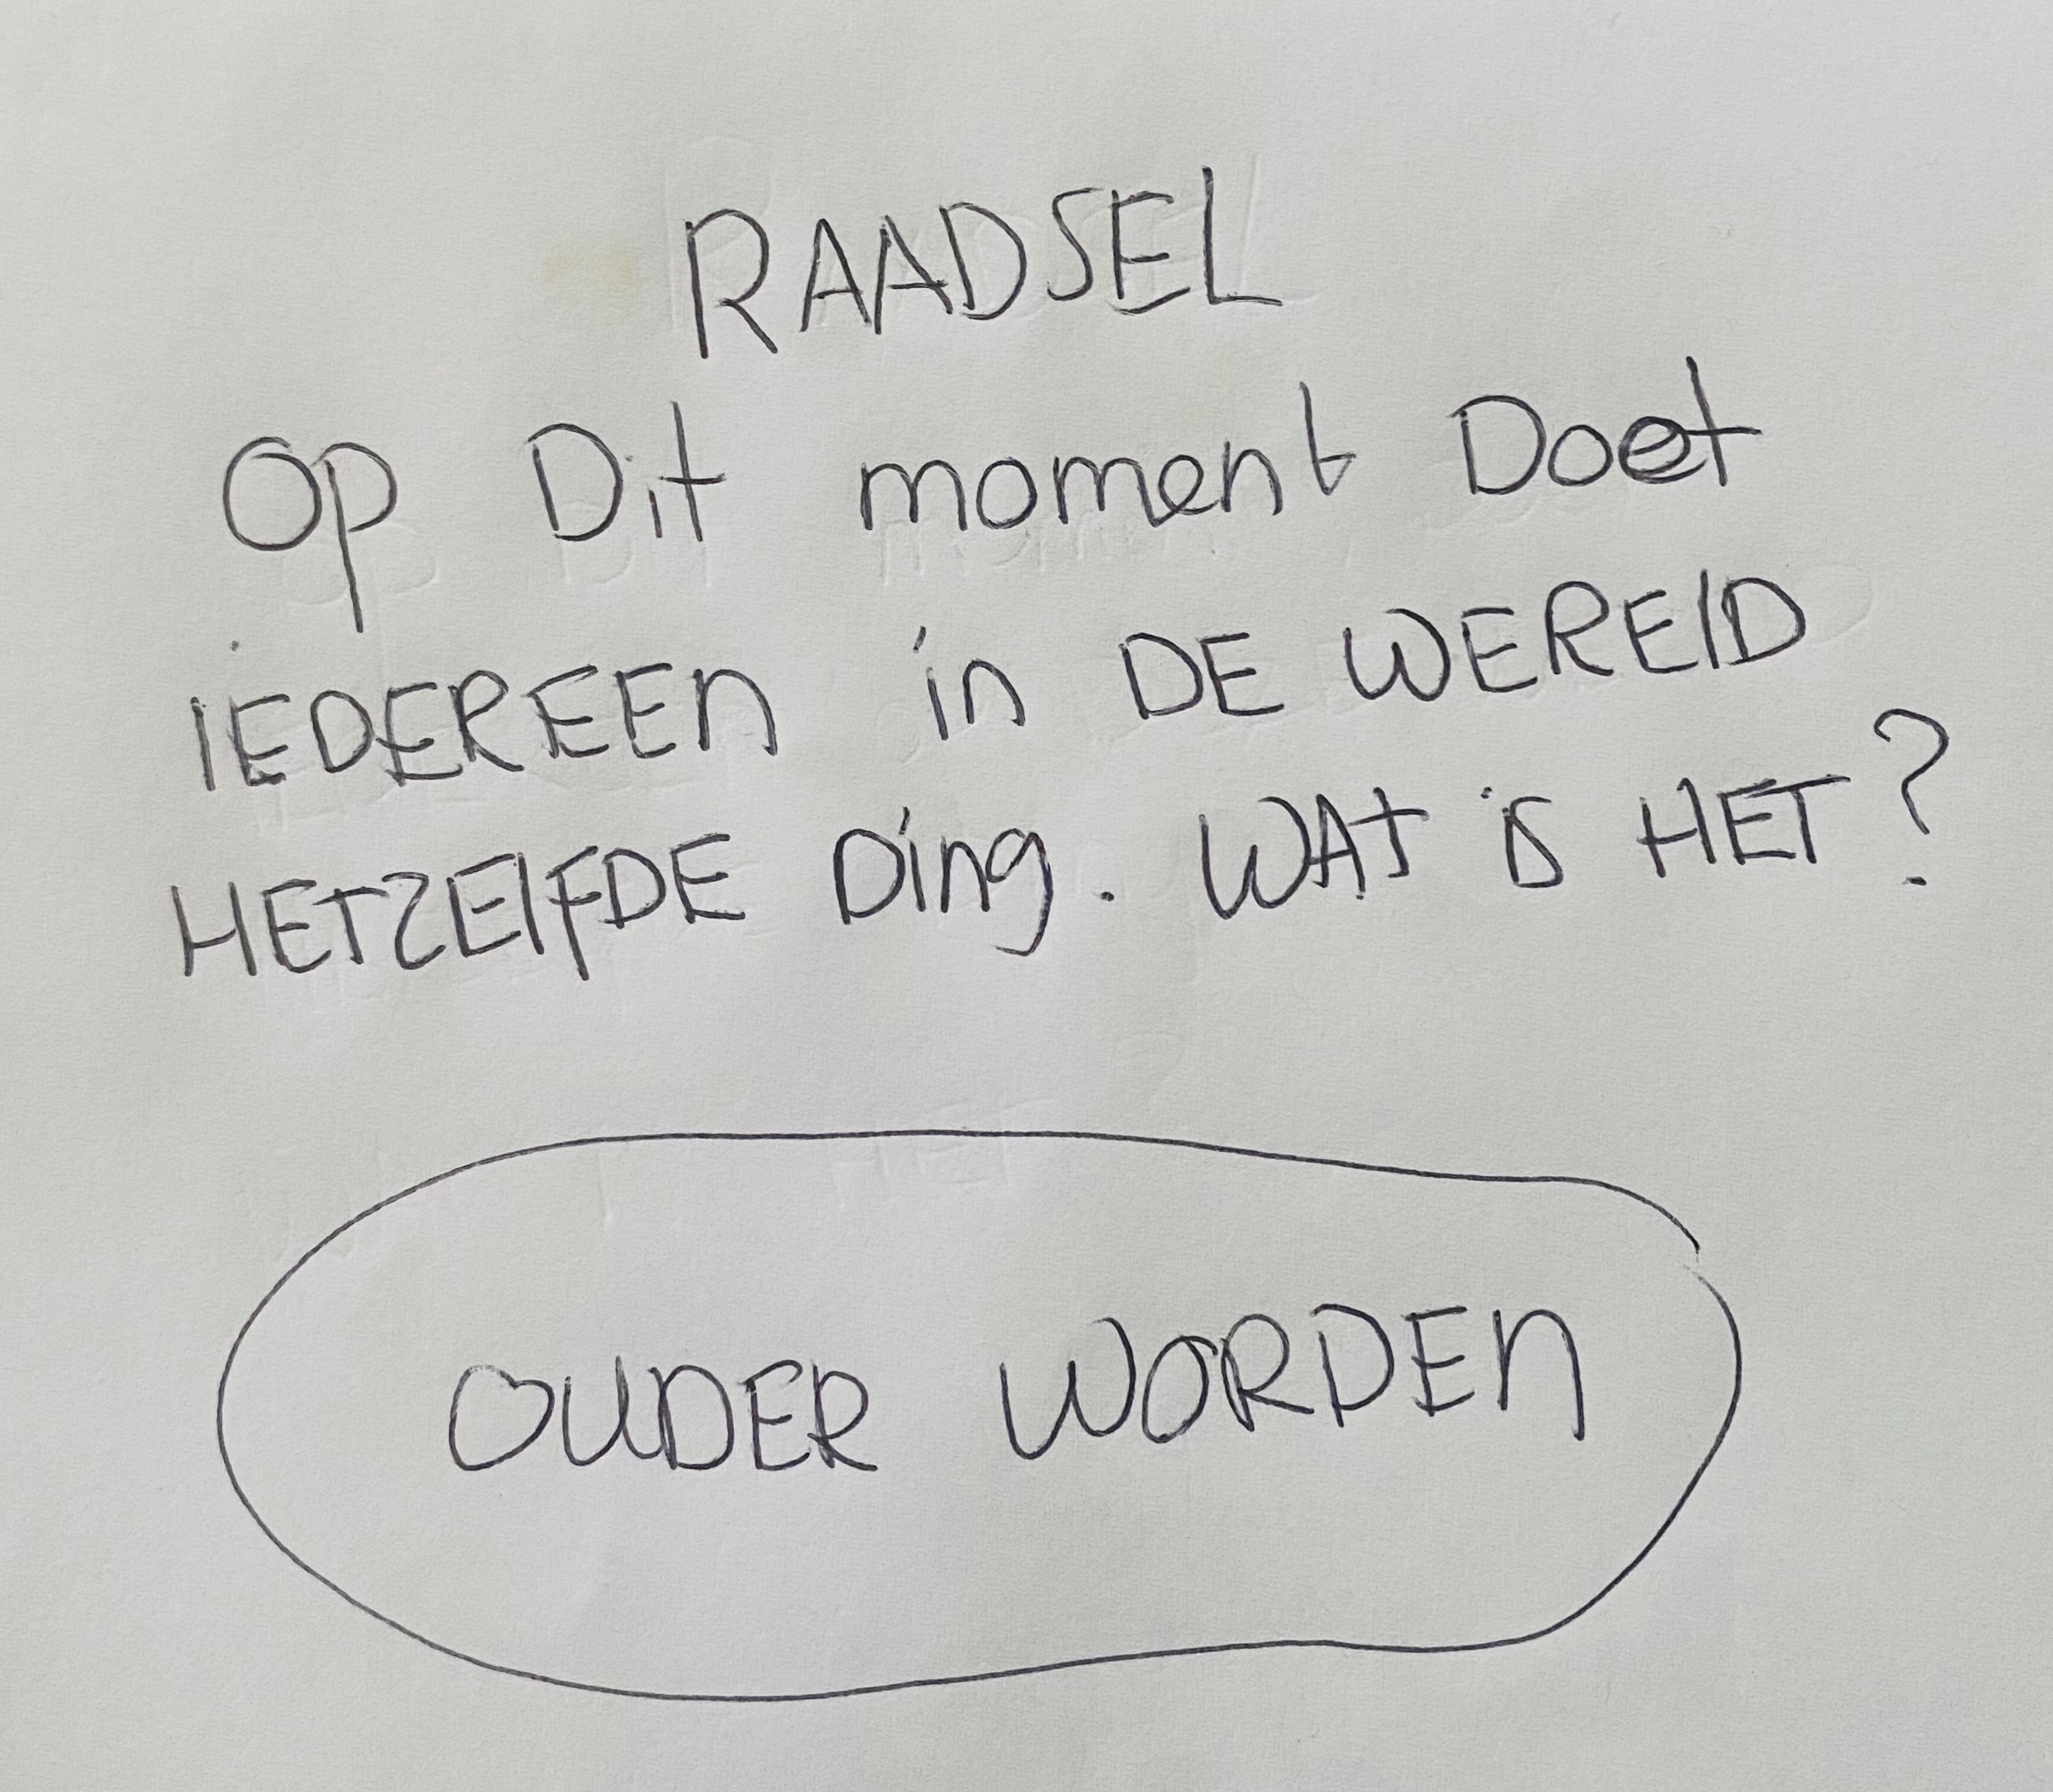 RAADSEL
Op Dit moment Doet
IEDEREEn in DE WERElD
HETZElFDE Ding. WAt iS HET?
OUDER WORDEn